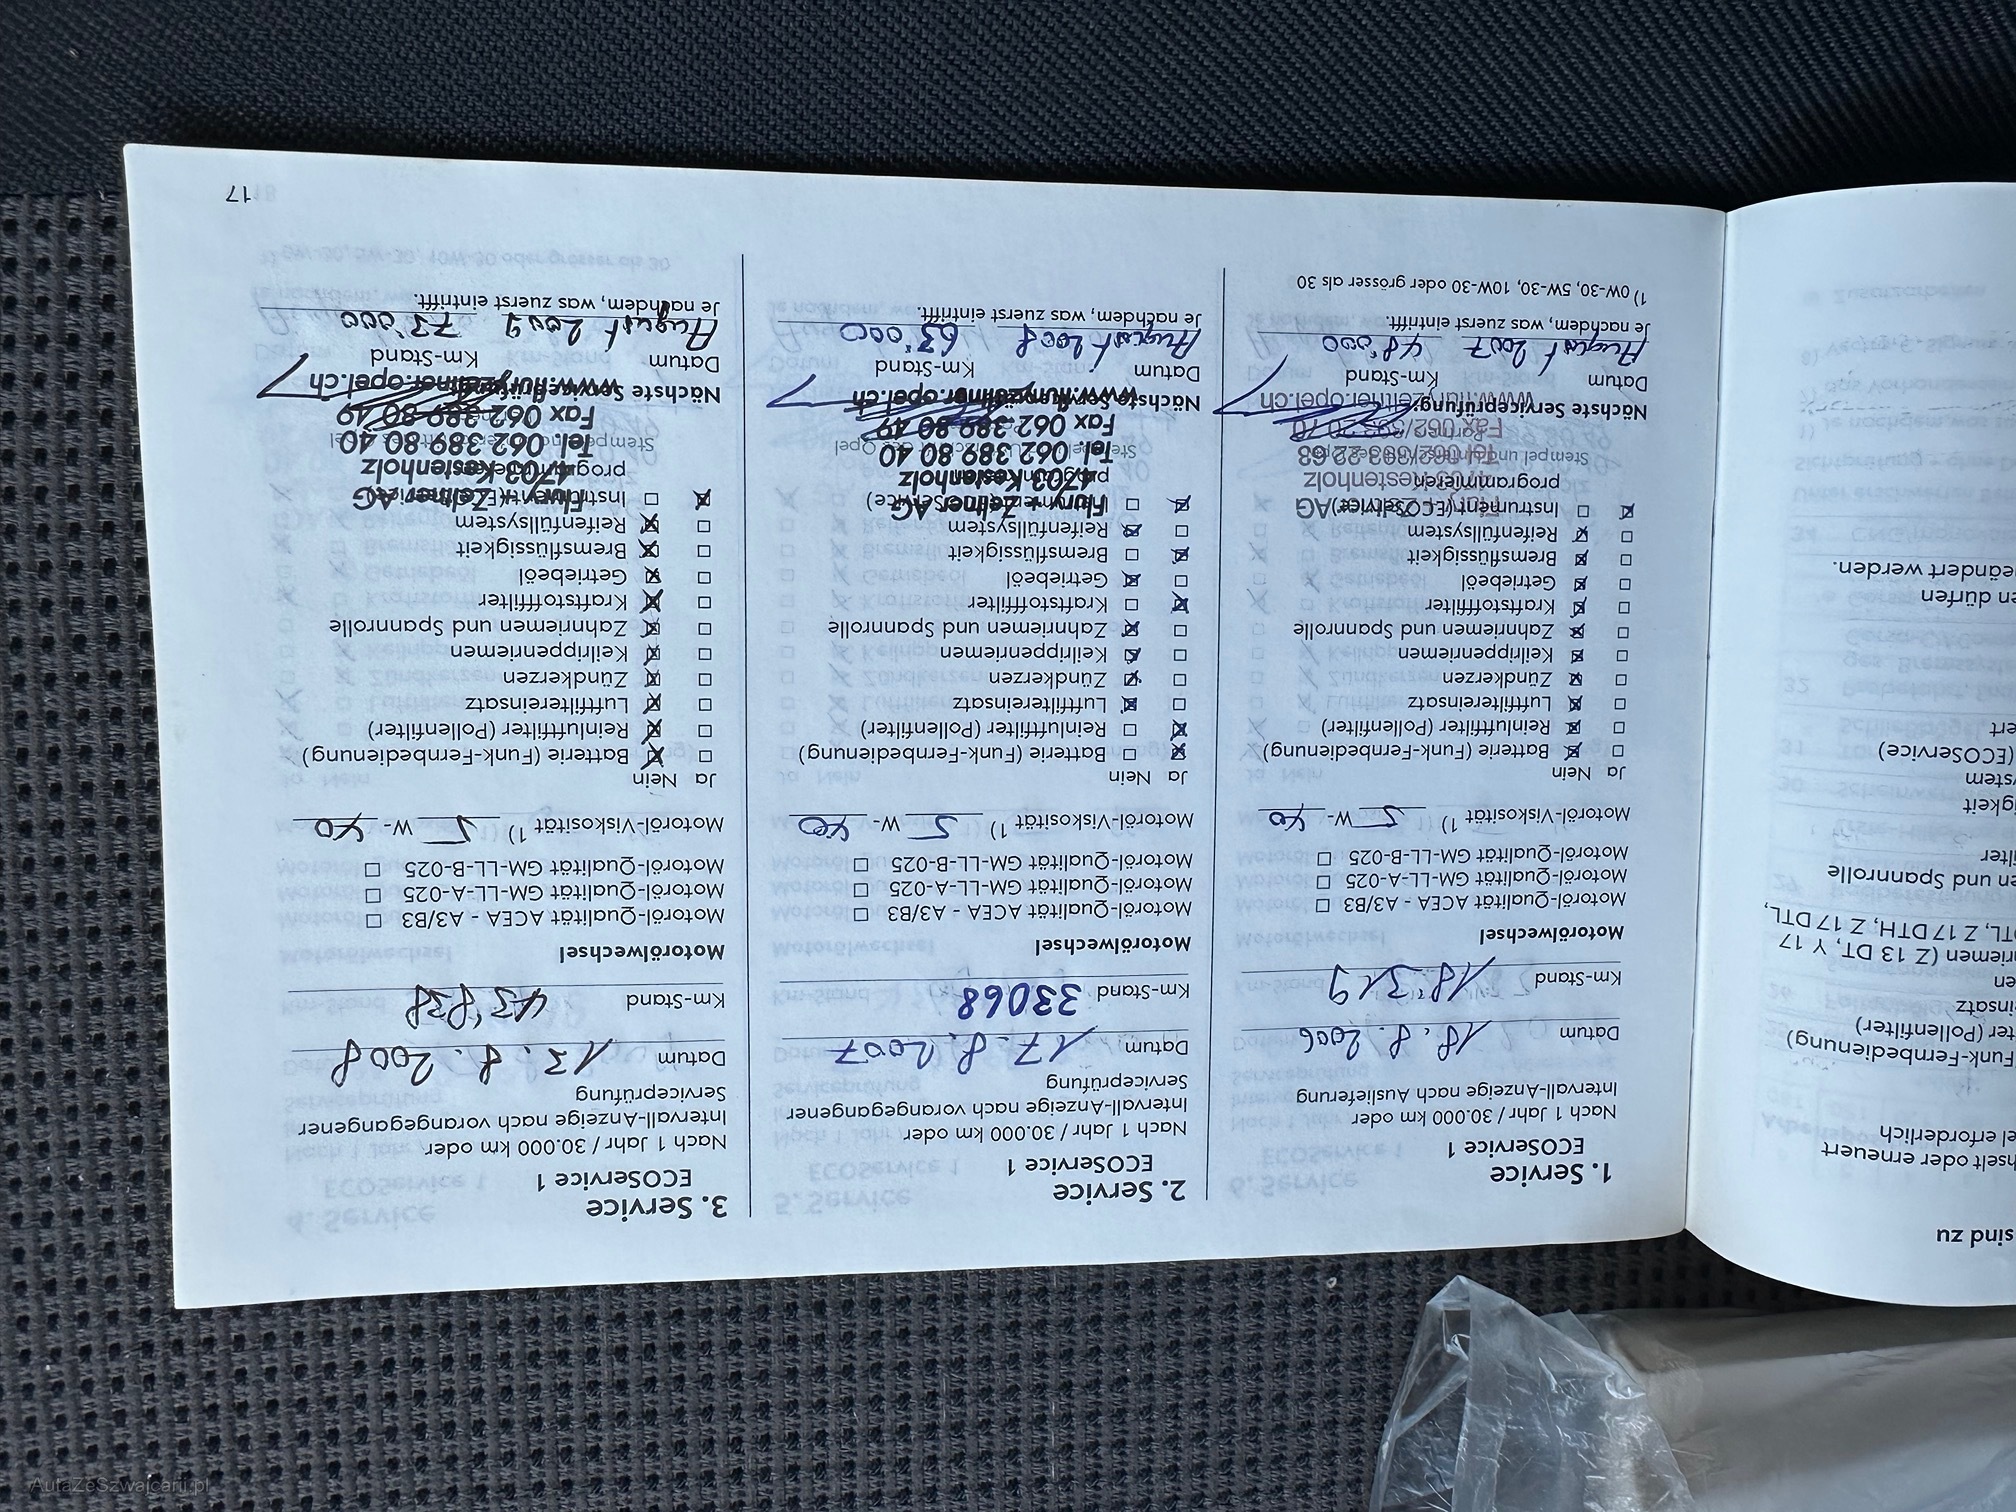 1. Service
ECOService 1
Nach 1 Jahr / 30.000 km oder
Intervall-Anzeige nach Auslieferung
Datum 18. 8. 2006
Km-Stand 18'319
Motorölwechsel
Motoröl-Qualität ACEA - A3/B3 ☐
Motoröl-Qualität GM-LL-A-025 ☐
Motoröl-Qualität GM-LL-B-025 ☐
Motoröl-Viskosität 1) 5 W- 40
Ja Nein
☐ ☒ Batterie (Funk-Fernbedienung)
☐ ☒ Reinluftfilter (Pollenfilter)
☐ ☒ Luftfiltereinsatz
☐ ☒ Zündkerzen
☐ ☒ Keilrippenriemen
☐ ☒ Zahnriemen und Spannrolle
☐ ☒ Kraftstofffilter
☐ ☒ Getriebeöl
☐ ☒ Bremsflüssigkeit
☐ ☒ Reifenfüllsystem
☒ ☐ Instrument (ECOService)
programmieren
Stempel und
Nächste Serviceprüfung:
Datum Km-Stand
August 2007 48'000
Je nachdem, was zuerst eintrifft.
1) 0W-30, 5W-30, 10W-30 oder grösser als 30
2. Service
ECOService 1
Nach 1 Jahr / 30.000 km oder
Intervall-Anzeige nach vorangegangener
Serviceprüfung
Datum 17. 8. 2007
Km-Stand 33068
Motorölwechsel
Motoröl-Qualität ACEA - A3/B3 ☐
Motoröl-Qualität GM-LL-A-025 ☐
Motoröl-Qualität GM-LL-B-025 ☐
Motoröl-Viskosität 1) 5 W- 40
Ja Nein
☒ ☐ Batterie (Funk-Fernbedienung)
☒ ☐ Reinluftfilter (Pollenfilter)
☐ ☒ Luftfiltereinsatz
☐ ☒ Zündkerzen
☐ ☒ Keilrippenriemen
☐ ☒ Zahnriemen und Spannrolle
☒ ☐ Kraftstofffilter
☐ ☒ Getriebeöl
☒ ☐ Bremsflüssigkeit
☐ ☒ Reifenfüllsystem
☒ ☐
Flury + Zeltner AG
4703 Kestenholz
Tel. 062 389 80 40
Fax 062 389 80 49
www.fluryzeltner.opel.ch
Nächste
Datum Km-Stand
August 2008 63'000
Je nachdem, was zuerst eintrifft.
3. Service
ECOService 1
Nach 1 Jahr / 30.000 km oder
Intervall-Anzeige nach vorangegangener
Serviceprüfung
Datum 13. 8. 2008
Km-Stand 43'838
Motorölwechsel
Motoröl-Qualität ACEA - A3/B3 ☐
Motoröl-Qualität GM-LL-A-025 ☐
Motoröl-Qualität GM-LL-B-025 ☐
Motoröl-Viskosität 1) 5 W- 40
Ja Nein
☐ ☒ Batterie (Funk-Fernbedienung)
☐ ☒ Reinluftfilter (Pollenfilter)
☐ ☒ Luftfiltereinsatz
☐ ☒ Zündkerzen
☐ ☒ Keilrippenriemen
☐ ☒ Zahnriemen und Spannrolle
☐ ☒ Kraftstofffilter
☐ ☒ Getriebeöl
☐ ☒ Bremsflüssigkeit
☐ ☒ Reifenfüllsystem
☒ ☐
Flury + Zeltner AG
4703 Kestenholz
Tel. 062 389 80 40
Fax 062 389 80 49
www.fluryzeltner.opel.ch
Nächste
Datum Km-Stand
August 2009 73'000
Je nachdem, was zuerst eintrifft.
17
sind zu
oder erneuert
erforderlich
(Pollenfilter)
und Spannrolle
(ECOService)
dürfen
werden.
AutaZeSzwajcarii.pl